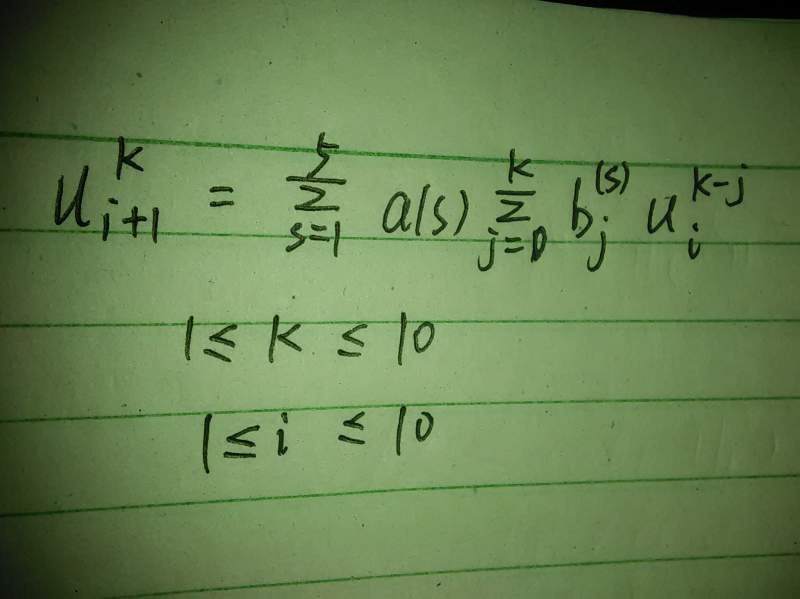 u_{i+1}^{k} = \sum_{s=1}^{5} a(s) \sum_{j=0}^{k} b_{j}^{(s)} u_{i}^{k-j}
1 ≤ k ≤ 10
1 ≤ i ≤ 10